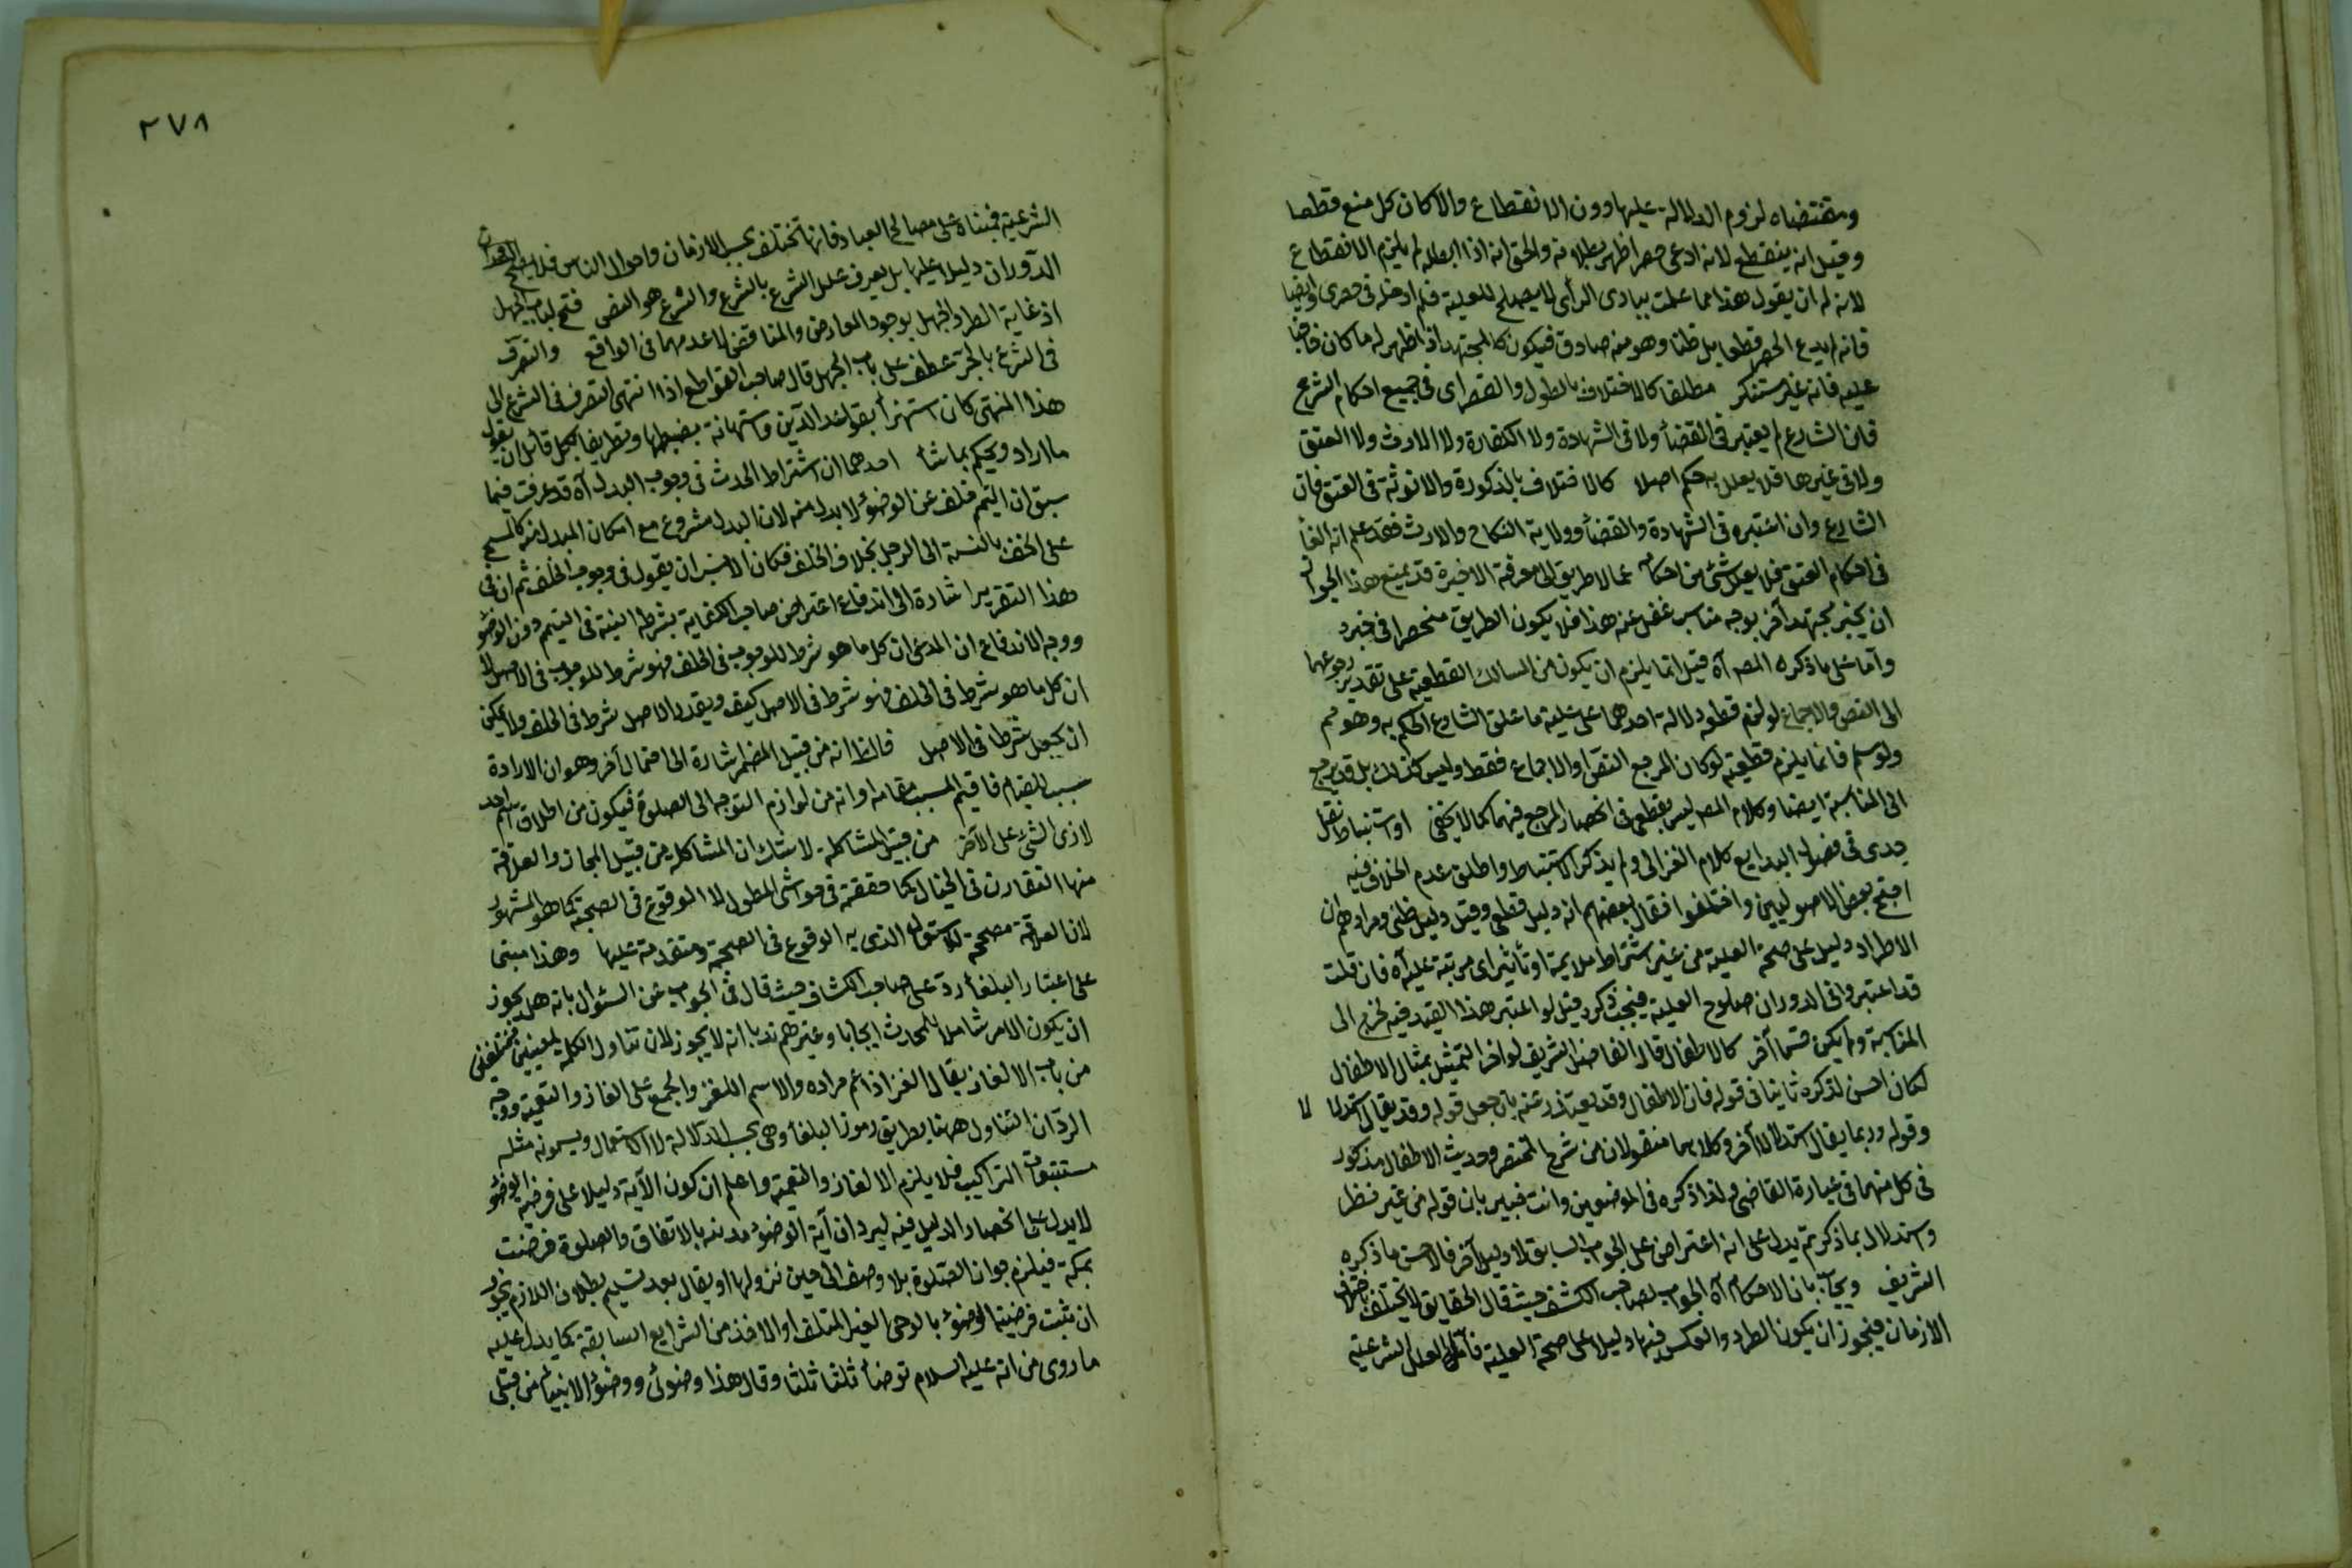 ومقتضاه لزوم الدلالة عليها دون الانقطاع والا كان كل منع قطعا
وقيل انه ينقطع لانه ادعى حصرا ظهر بطلانه والحق انه اذا ابطله لم يلزم الانقطاع
لانه له ان يقول هذا مما علمت ببادى الرأى لا يصلح للعلية فلم ادخله فى حصرى وايضا
فانه لم يدع الحصر قطعا بل ظنا وهو منه صادق فيكون كالمجتهد اذا ظهر له ما كان خافيا
عليه فانه غير مستنكر مطلقا كالاختلاف بالطول والقصر اى فى جميع احكام الشرع
فان الشارع لم يعتبر فى القضاء ولا فى الشهادة ولا الكفارة ولا الارث ولا العتق
ولا فى غيرها فلا يعلل به حكم اصلا كالاختلاف بالذكورة والانوثة فى العتق فان
الشارع وان اعتبره فى الشهادة والقضاء وولاية النكاح والارث فقد علم انه الغاه
فى احكام العتق فلا يعلل شئ من احكامه مما لا طريق الى معرفة الاخيرة قد يمنع هذا الجواز
ان يخبر مجتهد آخر بوجه مناسب غفل عنه هذا فلا يكون الطريق منحصرا فى خبره
واما على ما ذكره المصـ آه قيل انما يلزم ان يكون من المسالك القطعية على تقدير رجوعهما
الى النص والاجماع لو لزم قطعه دلالة احدهما على علية ما علق الشارع الحكم به وهو مم
ولو سلم فانما يلزم قطعيته لو كان المرجع النص او الاجماع فقط وليس كذلك بل قد يرجع
الى المناسبة ايضا وكلام المصـ ليس بقطعى فى انحصار المرجع فيهما كما لا يخفى او استنباط نقل
جدى فى فصول البدايع كلام الغزالى ولم يذكر الاستنباط واطلق عدم الخلاف فيه
احتج بعض الاصوليين واختلفوا فقال بعضهم انه دليل قطعى وقيل دليل ظنى ومرادهم ان
الاطراد دليل على صحة العلية من غير اشتراط ملايمة او تأثير اى مرتبة عليه آه فان قلت
قد اعتبروا فى الدوران صلوح العلية فيجب ذكره قيل لو اعتبر هذا القيد فيه لخرج الى
المناسبة ولم يكن قسما آخر كالاطفال قال الفاضل الشريف لو اخر التمثيل بمثال الاطفال
لكان احسن لذكره ثانيا فى قوله فان الاطفال وقد يعتذر عنه بان جعل قوله وقد يقال استدلالا
وقوله وربما يقال استدلالا آخر وكلاهما منقولان من شرح المختصر وحديث الاطفال مذكور
فى كل منهما فى عبارة القاضى ولذا ذكره فى الموضعين وانت خبير بان قوله من غير نظر
واستدلال بما ذكرتم يدل على انه اعتراض على الجواب السابق لا دليل آخر فالاحسن ما ذكره
الشريف ويجاب بان الاحكام آه الجواب لصاحب الكشف حيث قال الحقايق لا يختلف باختلاف
الازمان فيجوز ان يكون الطرد والعكس فيها دليلا على صحة العلية فاما العلل الشرعية
٢٧٨
الشرعية فمبناه على مصالح العباد فانها تختلف بحسب الازمان واحوال الناس فلا يصلح
الدوران دليلا عليها بل يعرف علل الشرع بالشرع والشرع هو النص فتح لباب الجهل
اذ غاية الطرد الجهل بوجود المعارض والمناقض لا عدمهما فى الواقع والتصرف
فى الشرع بالجر عطف على باب الجهل قال صاحب القواطع اذا انتهى التصرف فى الشرع الى
هذا المنتهى كان استهزاء بقواعد الدين واستهانة بضبطها وتطريقا لكل قائل ان يقول
ما اراد ويحكم بما شاء احدهما ان اشتراط الحدث فى وجوب البدل آه قد عرفت فيما
سبق ان التيمم خلف عن الوضوء لا بدل منه لان البدل مشروع مع امكان المبدل منه كالمسح
على الخف بالنسبة الى الرجل بخلاف الخلف فكان الانسب ان يقول فى وجوب الخلف ثم ان فى
هذا التقرير اشارة الى اندفاع اعتراض صاحب الكفاية بشرط النية فى التيمم دون الوضوء
ووجه الاندفاع ان المدعى ان كل ما هو شرط للوجوب فى الخلف فهو شرط للوجوب فى الاصل لا
ان كل ما هو شرط فى الخلف فهو شرط فى الاصل كيف وبفقد الاصل شرط فى الخلف ولا يمكن
ان يجعل شرطا فى الاصل قالظ انه من قبيل المضمر اشارة الى احتمال آخر وهو ان الارادة
سبب للقيام فاقيم المسبب مقامه او انه من لوازم التوجه الى الصلوة فيكون من اطلاق اسم احد
لازمى الشئ على الآخر من قبيل المشاكلة لا شك ان المشاكلة من قبيل المجاز والعلاقة
منها التقارن فى الخيال كما حققته فى حواشى المطول لا الوقوع فى الصحبة كما هو المشهور
لان العلاقة مصححة للاستعمال الذى به الوقوع فى الصحبة ومتقدمة عليها وهذا مبنى
على اعتبار البلغاء رد على صاحب الكشاف حيث قال فى الجواب عن السئوال بانه هل يجوز
ان يكون الامر شاملا للمحدث ايجابا وغيرهم ندبا انه لا يجوز لان تناول الكلمة لمعنيين مختلفين
من باب الالغاز يقال الغز اذا عم مراده والاسم اللغز والجمع على الغاز والتعمية ووجه
الرد ان التناول ههنا بطريق رموز البلغاء وهى بحسب الدلالة لا الاستعمال ويسمونه مثله
مستتبعات التراكيب فلا يلزم الالغاز والتعمية واعلم ان كون الآية دليلا على فرضية الوضوء
لا يدل على انحصار الدليل فيه ليرد ان آية الوضوء مدنية بالاتفاق والصلوة فرضت
بمكة فيلزم جواز الصلوة بلا وضوء الى حين نزولها او يقال بعد تسليم بطلان اللازم يجوز
ان تثبت فرضية الوضوء بالوحى الغير المتلو او الاخذ من الشرايع السابقة كما يدل عليه
ما روى من انه عليه السلام توضأ ثلثا ثلثا وقال هذا وضوئى ووضوء الانبياء من قبلى